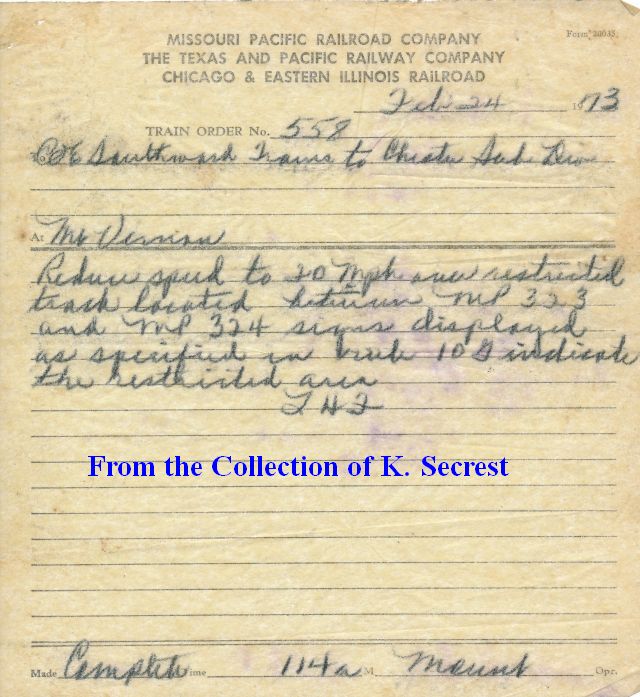 Form 20035
MISSOURI PACIFIC RAILROAD COMPANY
THE TEXAS AND PACIFIC RAILWAY COMPANY
CHICAGO & EASTERN ILLINOIS RAILROAD
Feb 24 1973
TRAIN ORDER No. 558
C&E Southward Trains to Chester Sub Divn
At Mt Vernon
Reduce speed to 20 Mph over restricted
track located between MP 323
and MP 324 signs displayed
as specified in rule 10 G indicate
the restricted area
From the Collection of K. Secrest
Made Complete ime 114 a M Mount Opr.